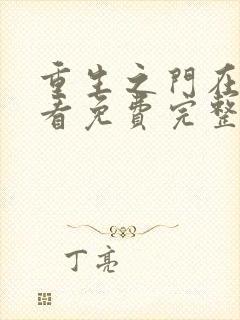 重生之門在
看免費完整
丁亮